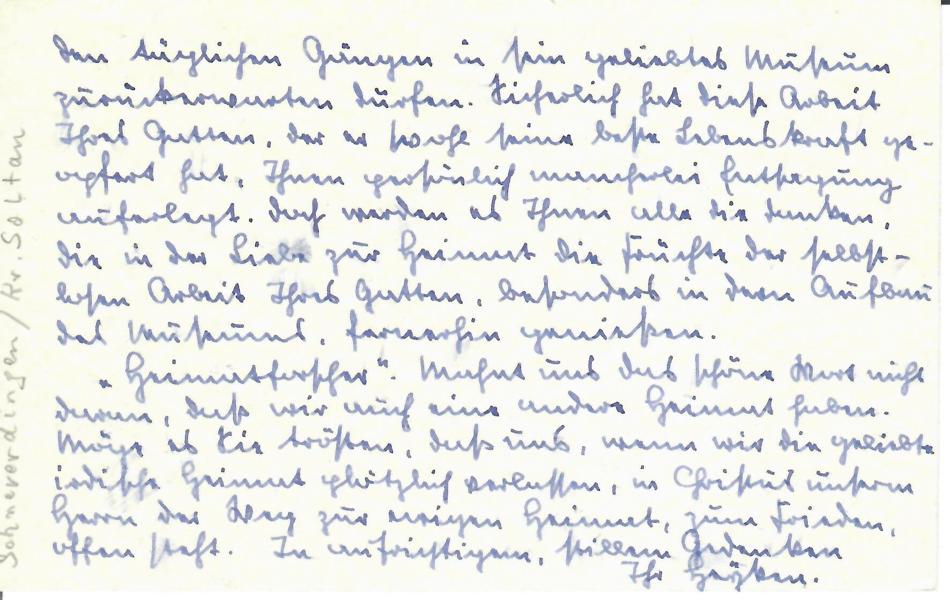 den täglichen Gängen in sein geliebtes Museum
zurückerwarten dürfen. Sicherlich hat diese Arbeit
Ihres Gatten, der er wohl seine beste Lebenskraft ge-
opfert hat, Ihnen persönlich mancherlei Entsagung
auferlegt. Doch werden es Ihnen alle die danken,
die in der Liebe zur Heimat die Früchte der selbst-
losen Arbeit Ihres Gatten, besonders in dem Aufbau
des Museums, fernerhin genießen.
„Heimatforscher“. Mahnt uns das schöne Wort nicht
daran, daß wir auch eine andere Heimat haben.
Möge es Sie trösten, daß uns, wenn wir die geliebte
irdische Heimat plötzlich verlassen, in Christus unserm
Herrn der Weg zur ewigen Heimat, zum Frieden,
offen steht. In aufrichtigem, stillem Gedenken
Ihr Heyken.
Schneverdingen / Kr. Soltau